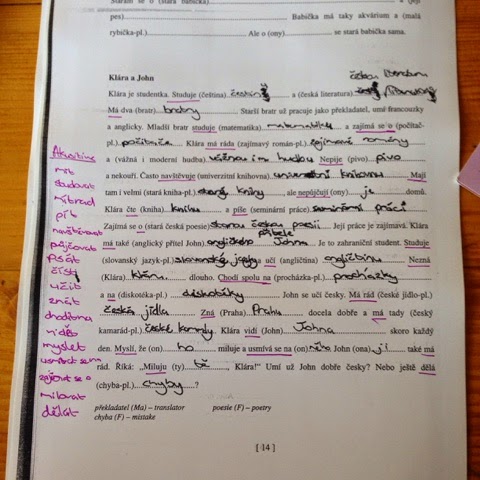 Starám se o (stará babička) a (její
pes) Babička má taky akvárium a (malá
rybička-pl.) Ale o (ony) se stará babička sama.
Klára a John
českou literaturu
Klára je studentka. Studuje (čeština) češtinu a (česká literatura) literaturu
Má dva (bratr) bratry Starší bratr už pracuje jako překladatel, umí francouzky
a anglicky. Mladší bratr studuje (matematika) matematiku a zajímá se o (počítač-
pl.) počítače. Klára má ráda (zajímavý román-pl.) zajímavé romány
a (vážná i moderní hudba) vážnou i m hudbu Nepije (pivo) pivo
a nekouří. Často navštěvuje (univerzitní knihovna) knihovnu Mají
tam i velmi (stará kniha-pl.) starý knihy ale nepůjčují (ony) je domů.
Klára čte (kniha) knihu a píše (seminární práce) seminární práci
Zajímá se o (stará česká poezie) starou českou poesii Její práce je zajímavá. Klára
přítele
má také (anglický přítel John) anglického Johna Je to zahraniční student. Studuje
(slovanský jazyk-pl.) slovanský jazyky a učí (angličtina) angličtinu Nezná
(Klára) Kláru dlouho. Chodí spolu na (procházka-pl.) procházky
a na (diskotéka-pl.) diskotéky John se učí česky. Má rád (české jídlo-pl.)
česká jídla Zná (Praha) Prahu docela dobře a má tady (český
kamarád-pl.) české kamarády Klára vidí (John) Johna skoro každý
den. Myslí, že (on) ho miluje a usmívá se na (on) něho John (ona) ji také má
rád. Říká: "Miluju (ty) tě, Kláro!" Umí už John dobře česky? Nebo ještě dělá
(chyba-pl.) chyby ?
překladatel (Ma) – translator poesie (F) – poetry
chyba (F) – mistake
[ 14 ]
Akusativ
mít
studovat
mít rád
pít
navštěvovat
půjčovat
psát
číst
učit
znát
chodit na
vidět
myslet
usmívat se na
zajímat se o
milovat
dělat